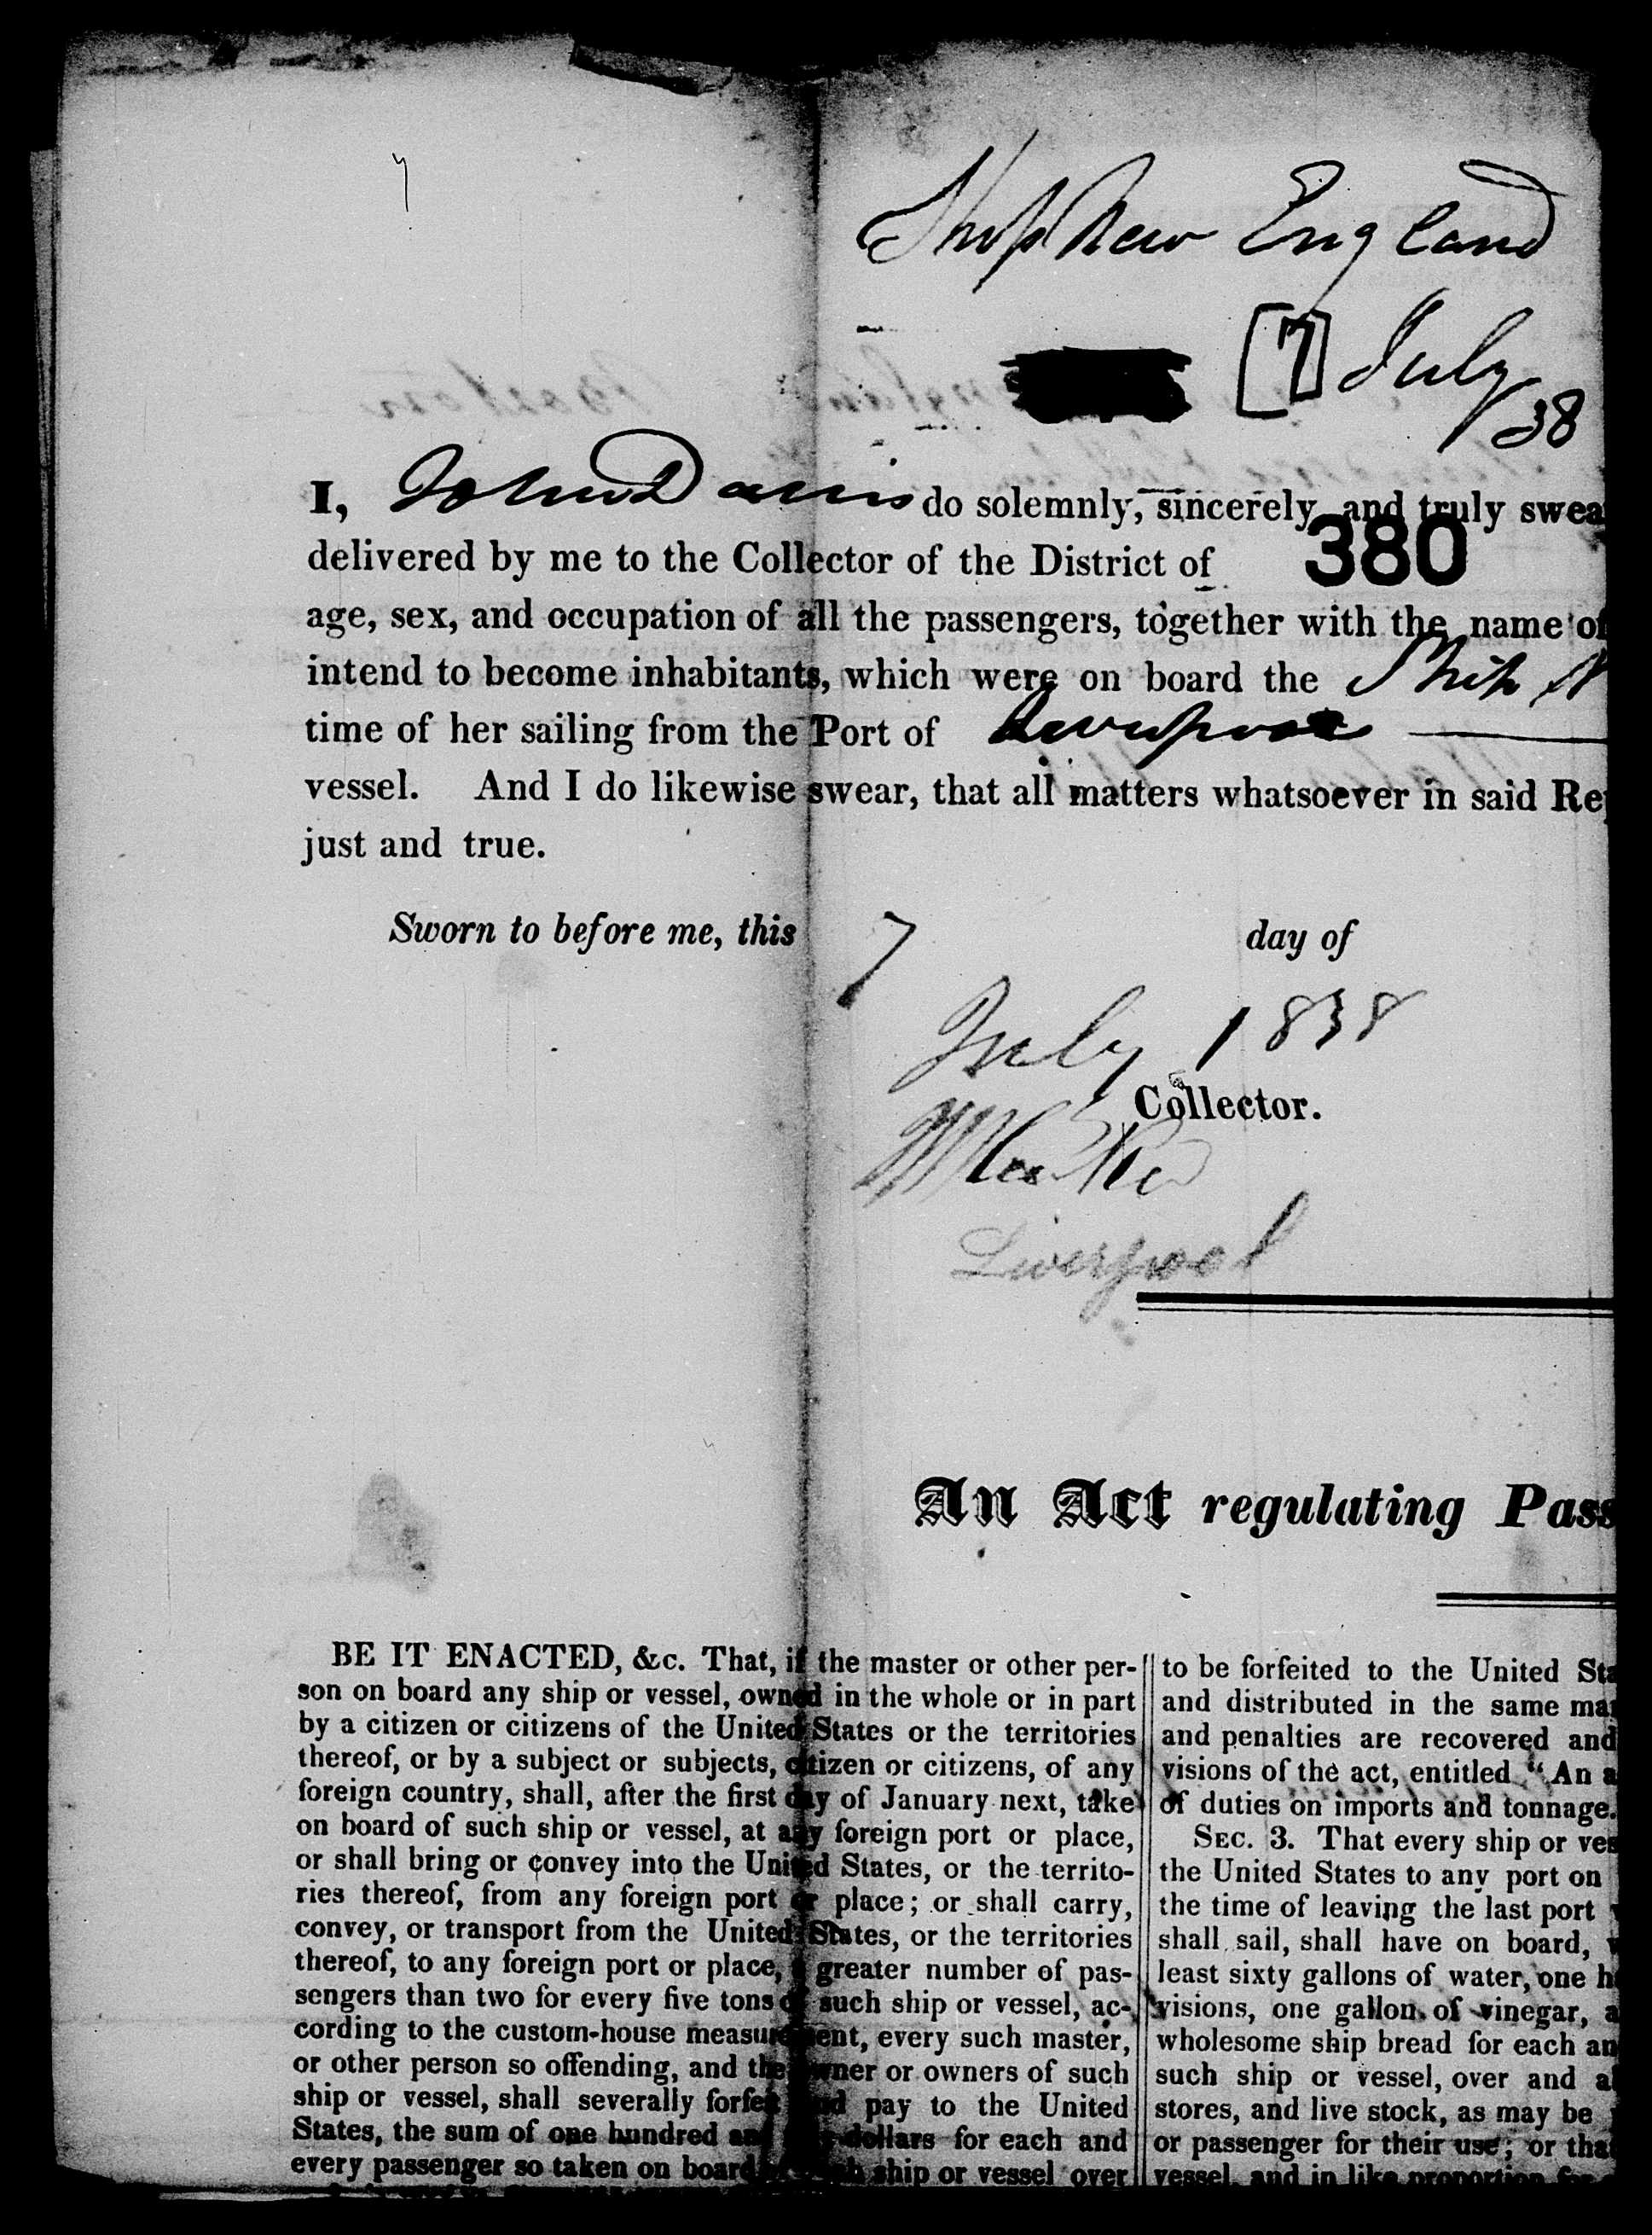 Ship New England
[7] July
/38
I, John Davis do solemnly, sincerely and truly swea
380
delivered by me to the Collector of the District of
age, sex, and occupation of all the passengers, together with the name of
intend to become inhabitants, which were on board the Ship N
time of her sailing from the Port of Liverpool
vessel. And I do likewise swear, that all matters whatsoever in said Re
just and true.
Sworn to before me, this 7 day of
July 1838
Collector.
Liverpool
An Act regulating Pass
BE IT ENACTED, &c. That, if the master or other per-
son on board any ship or vessel, owned in the whole or in part
by a citizen or citizens of the United States or the territories
thereof, or by a subject or subjects, citizen or citizens, of any
foreign country, shall, after the first day of January next, take
on board of such ship or vessel, at any foreign port or place,
or shall bring or convey into the United States, or the territo-
ries thereof, from any foreign port or place; or shall carry,
convey, or transport from the United States, or the territories
thereof, to any foreign port or place, a greater number of pas-
sengers than two for every five tons of such ship or vessel, ac-
cording to the custom-house measurement, every such master,
or other person so offending, and the owner or owners of such
ship or vessel, shall severally forfeit and pay to the United
States, the sum of one hundred and fifty dollars for each and
every passenger so taken on board of such ship or vessel over
to be forfeited to the United Sta
and distributed in the same ma
and penalties are recovered and
visions of the act, entitled "An a
of duties on imports and tonnage.
SEC. 3. That every ship or ves
the United States to any port on
the time of leaving the last port
shall sail, shall have on board,
least sixty gallons of water, one h
visions, one gallon of vinegar, a
wholesome ship bread for each an
such ship or vessel, over and a
stores, and live stock, as may be
or passenger for their use; or tha
vessel, and in like proportion for